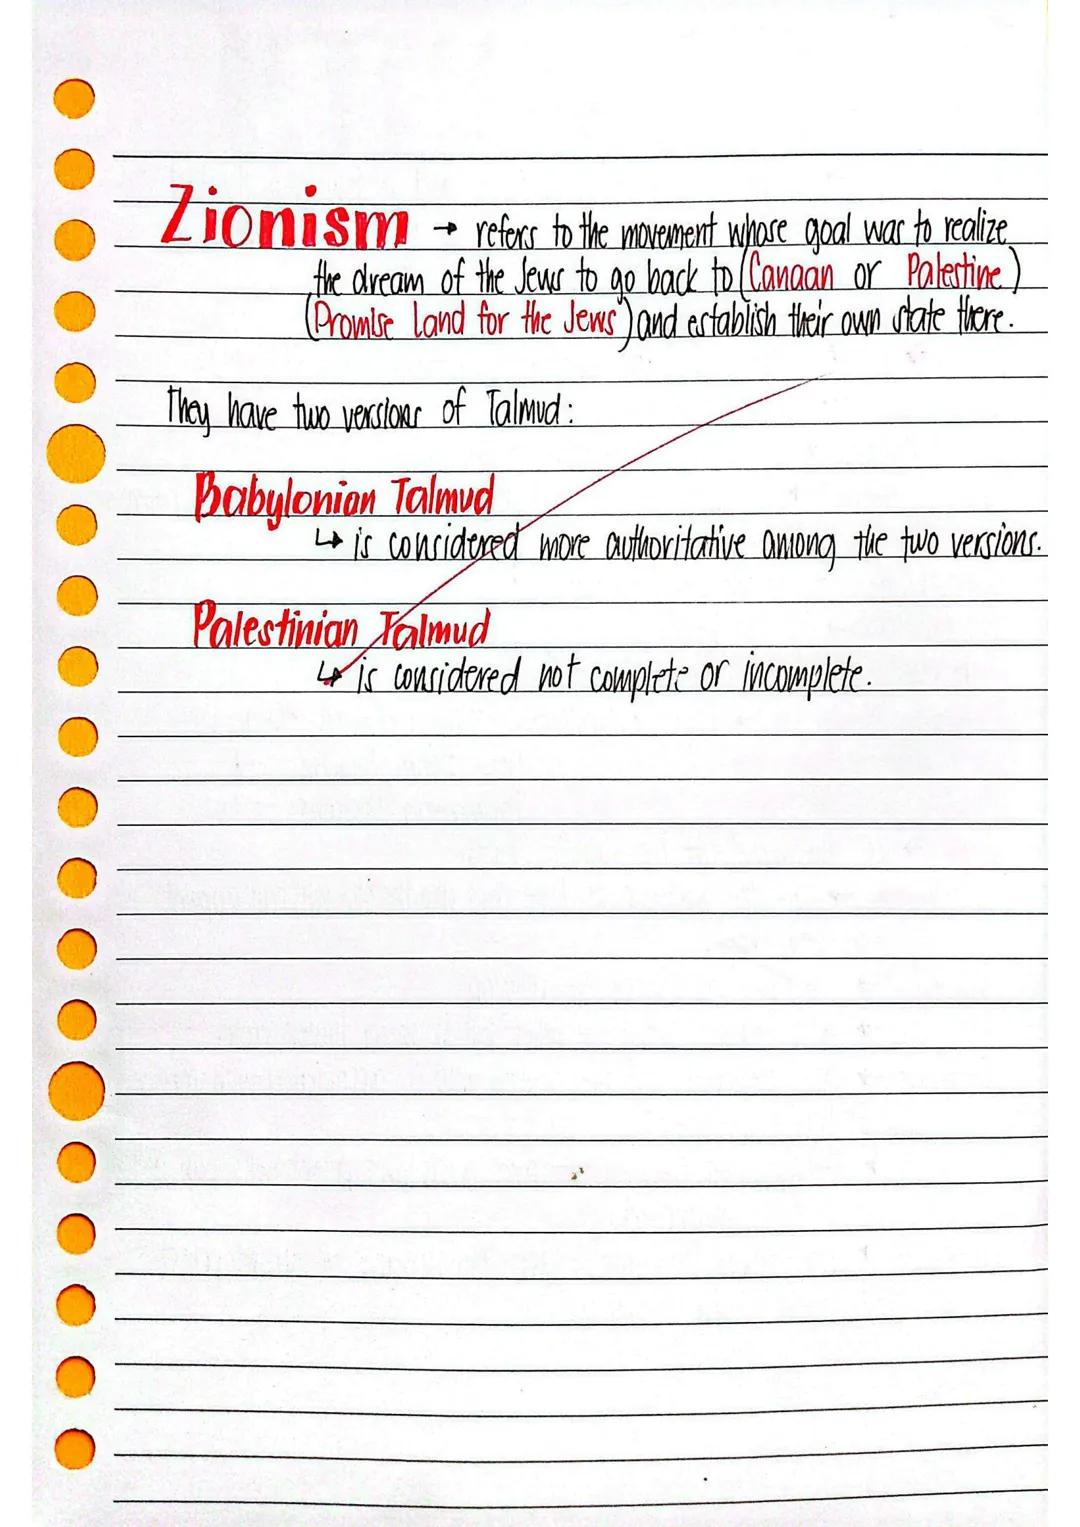 Zionism → refers to the movement whose goal was to realize
the dream of the Jews to go back to (Canaan or Palestine)
(Promise Land for the Jews) and establish their own state there.
They have two versions of Talmud:
Babylonian Talmud
↳ is considered more authoritative among the two versions.
Palestinian Talmud
↳ is considered not complete or incomplete.